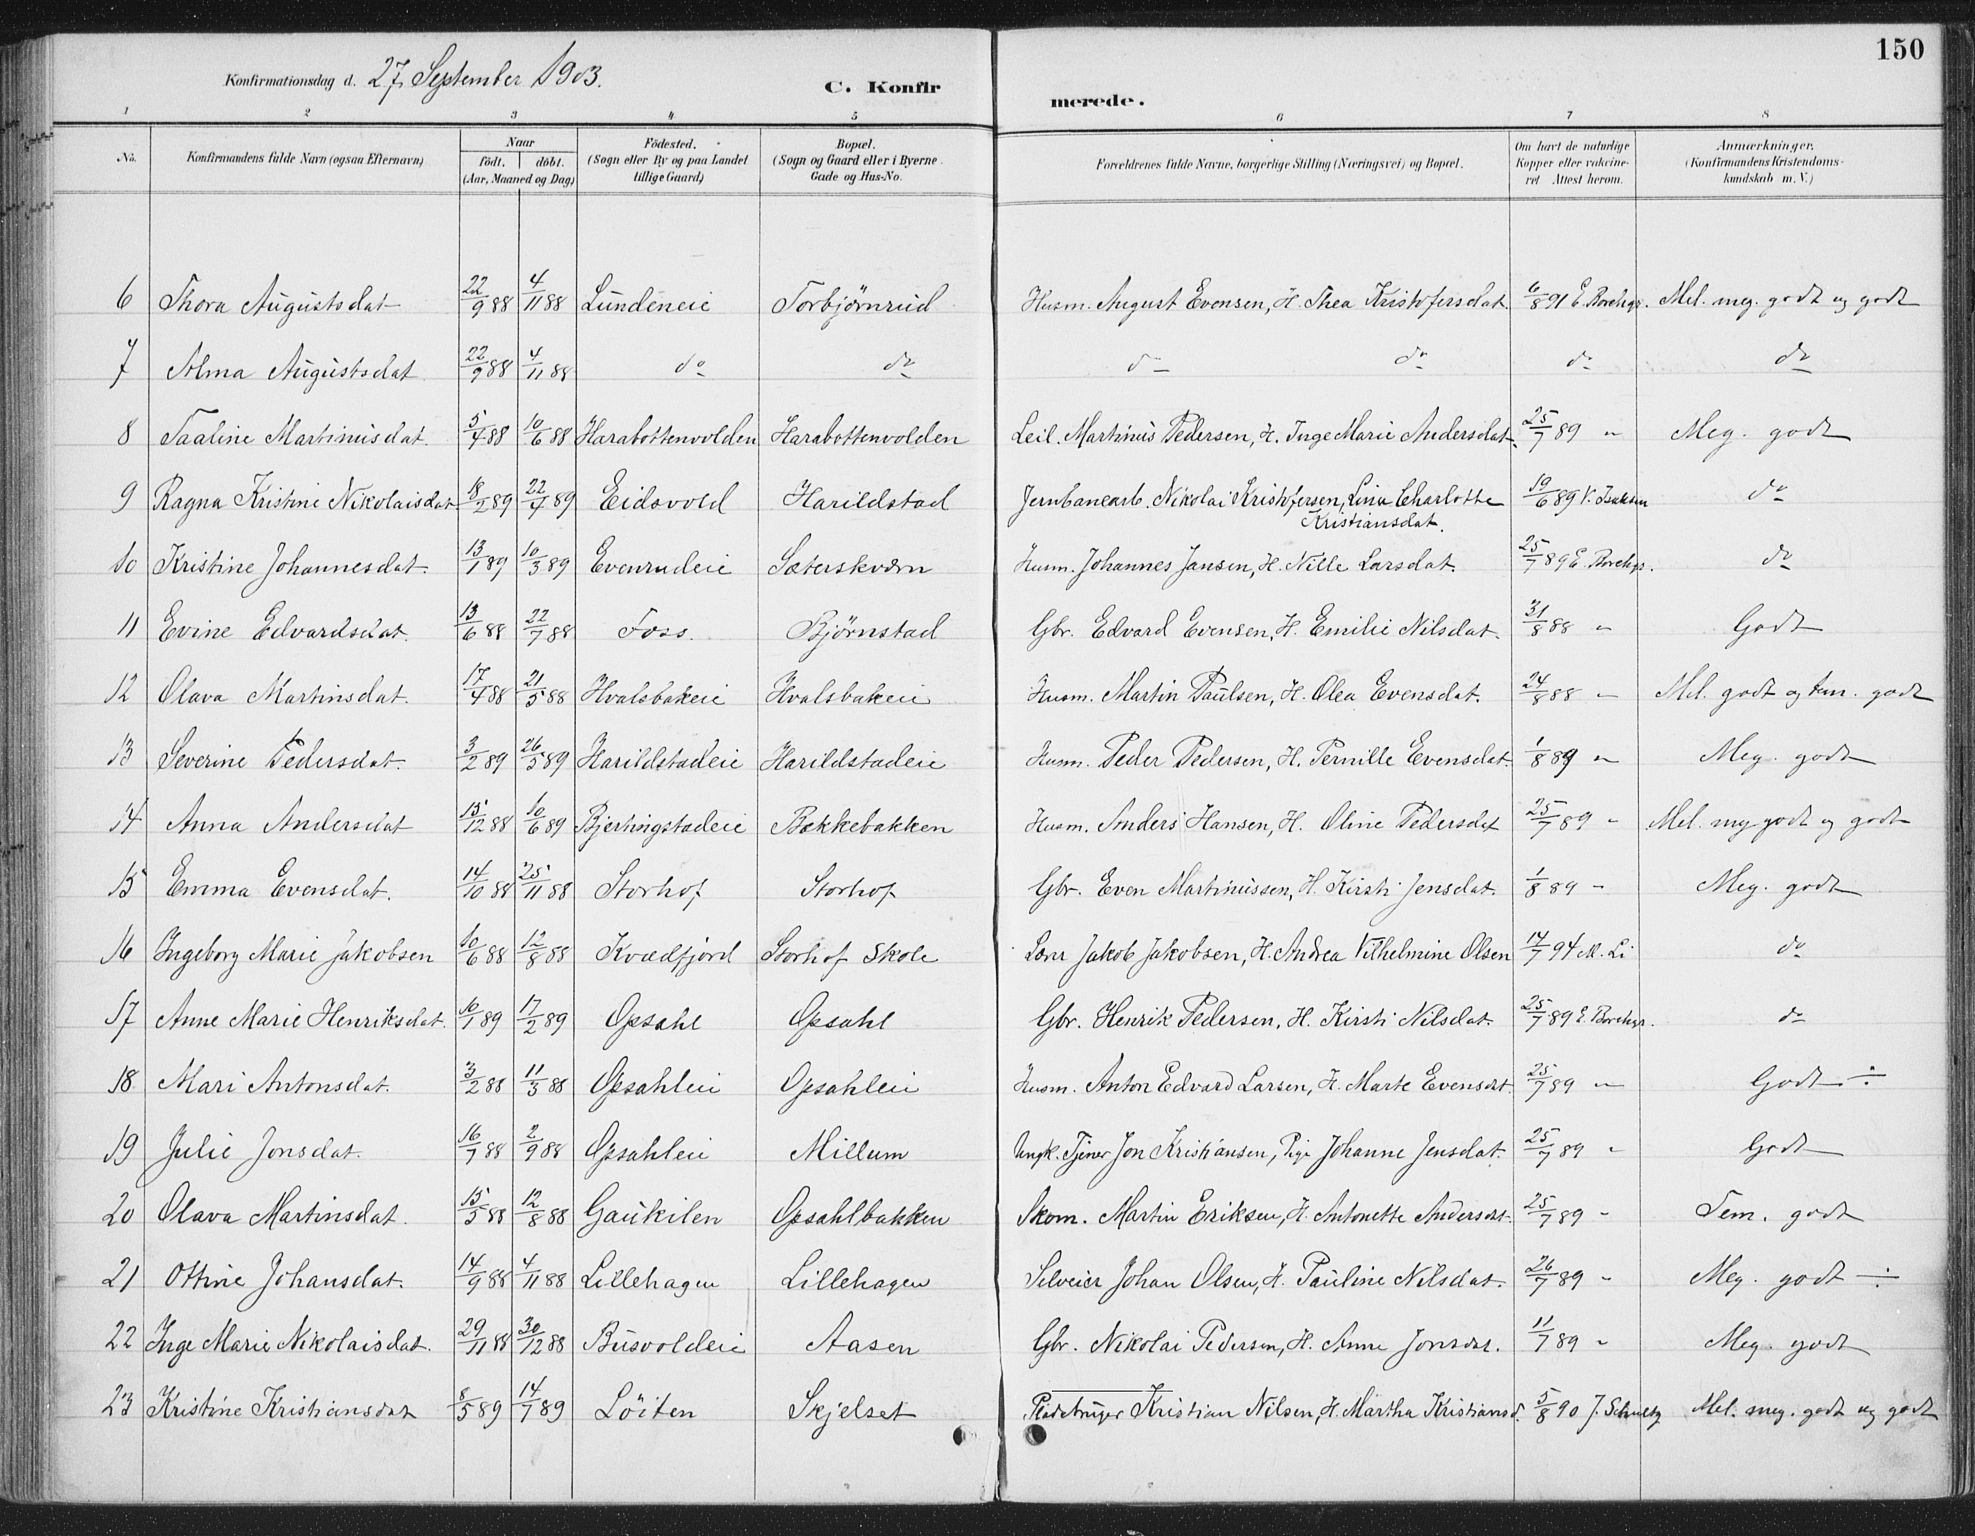 150
Konfirmationsdag d. 27 September 1903.
C. Konfirmerede.
1 2 3 4 5 6 7 8
No. Konfirmandens fulde Navn (ogsaa Efternavn) Naar födt. döbt. (Aar, Maaned og Dag) Födested. (Sogn eller By og paa Landet tillige Gaard) Bopæl. (Sogn og Gaard eller i Byerne Gade og Hus-No. Forældrenes fulde Navne, borgerlige Stilling (Næringsvei) og Bopæl. Om havt de naturlige Kopper eller vakcineret Attest herom. Anmærkninger. (Konfirmandens Kristendomskundskab m. V.)
6 Thora Augustsdat 22/9 88 4/11 88 Lundeneie Torbjørnrud Husm. August Evensen, H. Thea Kristofersdat. 6/8 91 E. Borchgr. Mel. meg. godt og godt
7 Alma Augustsdat 22/9 88 4/11 88 do do do do do do
8 Taaline Martinusdat. 5/4 88 10/6 88 Harabottenvolden Harabottenvolden Leil. Martinus Pedersen, H. Inge Marie Andersdat. 25/7 89 " Meg. godt
9 Ragna Kristine Nikolaisdat 18/2 89 22/4 89 Eidsvold Harildstad Jernbanearb. Nikolai Kristofersen, Lina Charlotte Kristiansdat. 19/6 89 V. Isaksen do
10 Kristine Johannesdat. 13/1 89 10/3 89 Evenrudeie Sæterskværn Husm. Johannes Jansen, H. Nille Larsdat. 25/7 89 E. Borchgr. do
11 Evine Edvardsdat. 13/6 88 22/7 88 Foss. Bjørnstad Gbr. Edvard Evensen, H. Emilie Nilsdat. 31/8 88 " Godt
12 Olava Martinsdat. 17/4 88 21/5 88 Hvalsbakeie Hvalsbakeie Husm. Martin Paulsen, H. Olea Evensdat. 24/8 88 " Mel. godt og tem. godt
13 Severine Pedersdat. 3/2 89 26/5 89 Harildstadeie Harildstadeie Husm. Peder Pedersen, H. Pernille Evensdat. 1/8 89 " Meg. godt
14 Anna Andersdat 15/12 88 10/6 89 Bjertingstadeie Bækkebakken Husm. Anders Hansen, H. Oline Pedersdat 25/7 89 " Mel. meg godt og godt
15 Emma Evensdat. 14/10 88 25/11 88 Storhof Storhof Gbr. Even Martinussen, H. Kirsti Jensdat. 1/8 89 " Meg. godt
16 Ingeborg Marie Jakobsen 10/6 88 12/8 88 Kvædfjord Storhof Skole Lærer Jakob Jakobsen, H. Andrea Vilhelmine Olsen 14/7 94 M. Li do
17 Anne Marie Henriksdat. 10/1 89 17/2 89 Opsahl Opsahl Gbr. Henrik Pedersen, H. Kirsti Nilsdat. 25/7 89 E. Borchgr. do
18 Mari Antonsdat. 3/2 88 11/3 88 Opsahleie Opsahleie Husm. Anton Edvard Larsen, H. Marte Evensdat. 25/7 89 " Godt ÷
19 Julie Jonsdat. 16/7 88 2/9 88 Opsahleie Millum Ungk. Tjener Jon Kristiansen, Pige Johanne Jensdat. 25/7 89 " Godt
20 Olava Martinsdat. 15/5 88 12/8 88 Gaukilen Opsahlbakken Skom. Martin Eriksen, H. Antonette Andersdt. 25/7 89 " Tem. godt
21 Ottine Johansdat. 14/9 88 4/11 88 Lillehagen Lillehagen Selveier Johan Olsen, H. Pauline Nilsdat. 26/7 89 " Meg. godt ÷
22 Inge Marie Nikolaisdat. 29/11 88 30/12 88 Busvoldeie Aasen Gbr. Nikolai Pedersen, H. Anne Jonsdat. 11/7 89 " Meg. godt
23 Kristine Kristiansdat 8/5 89 14/7 89 Löiten Skjelset Pladsbruger Kristian Nilsen, H. Martha Kristiansd. 5/8 90 J. Schultz Mel. meg. godt og godt